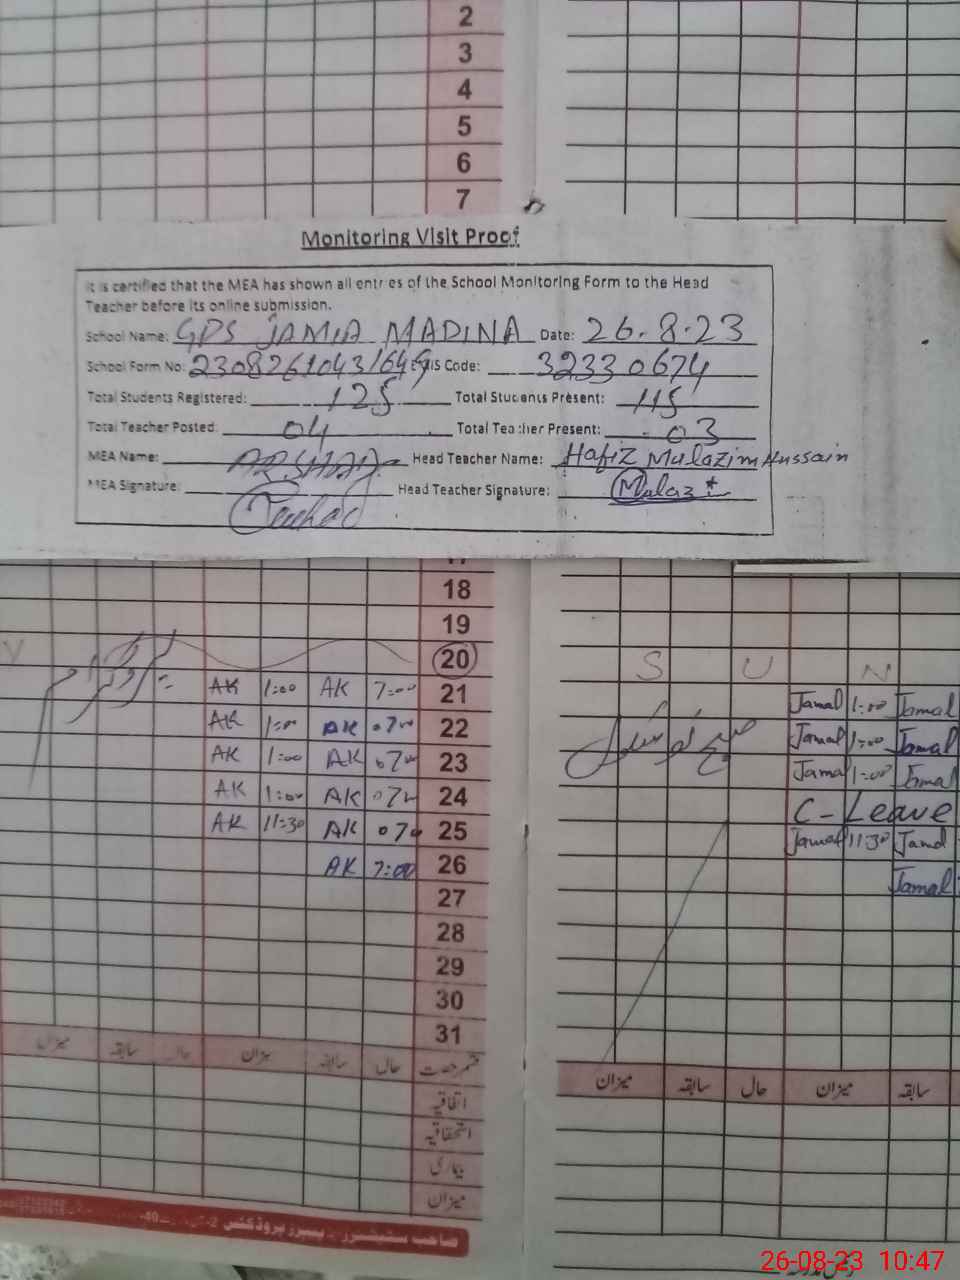 2
3
4
5
6
7
Monitoring Visit Proof
It is certified that the MEA has shown all entries of the School Monitoring Form to the Head
Teacher before its online submission.
School Name: GPS JAMIA MADINA Date: 26.8.23
School Form No: EMIS Code: 32330674
Total Students Registered: 125 Total Students Present: 115
Total Teacher Posted: 04 Total Teacher Present: 03
MEA Name: ARSHAD Head Teacher Name: Hafiz Mulazim Hussain
MEA Signature: Head Teacher Signature:
17
18
19
20 S U N
AK 1:00 AK 7:00 21 Jamal 1:00 Jamal
AK 1:00 AK 07 22 Jamal 1:00 Jamal
AK 1:00 AK 07 23 Jamal 1:00 Jamal
AK 1:00 AK 07 24 C-Leave
AK 11:30 AK 07 25 Jamal 11:30 Jamal
AK 7:00 26 Jamal
27
28
29
30
31
میزان سابقہ حال میزان سابقہ حال قسم رخصت
میزان سابقہ حال میزان سابقہ
اتفاقیہ
استحقاقیہ
بیماری
میزان
صاحب سٹیشنرز پیپرز پروڈکٹس
26-08-23 10:47